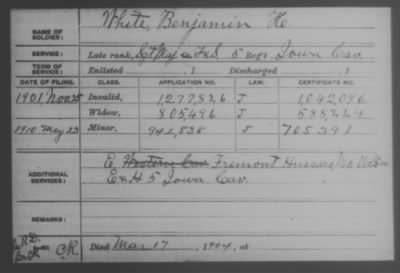 NAME OF SOLDIER: White, Benjamin H.
SERVICE: Late rank, Sgt Maj & F&S, 5 Regt. Iowa Cav
TERM OF SERVICE: Enlisted , 1 Discharged , 1
DATE OF FILING. CLASS. APPLICATION NO. LAW. CERTIFICATE NO.
1901 Nov 25 Invalid, 1,277,826 J 1,042,096
Widow, 805496 J 588,224
1910 May 23 Minor, 942,538 J 705,391
ADDITIONAL SERVICES: E. Western Cav Fremont Hussars Mo Vols
E&H 5 Iowa Cav.
REMARKS:
C.R. Died Mar 17, 1904, at